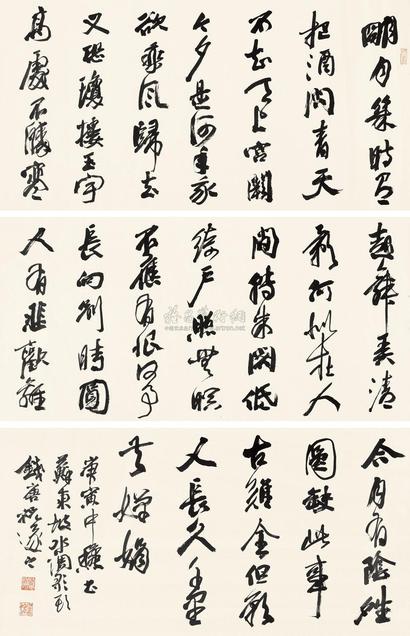 明月幾時有
把酒問青天
不知天上宮闕
今夕是何年我
欲乘風歸去
又恐瓊樓玉宇
高處不勝寒
起舞弄清
影何似在人
間轉朱閣低
綺戶照無眠
不應有恨何事
長向別時圓
人有悲歡離
合月有陰晴
圓缺此事
古難全但願
人長久千里
共嬋娟
庚寅中穐書
蘇東坡水調歌頭
錢唐祝遂之